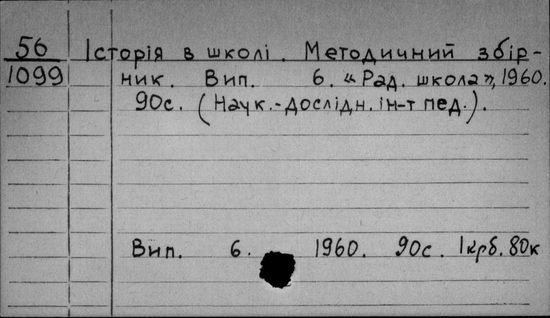 56 Історія в школі. Методичний збір-
1099 ник. Вип. 6. «Рад. школа», 1960.
90с. (Наук.-дослідн. ін-т пед.).
Вип. 6. 1960. 90с. 1крб. 80к